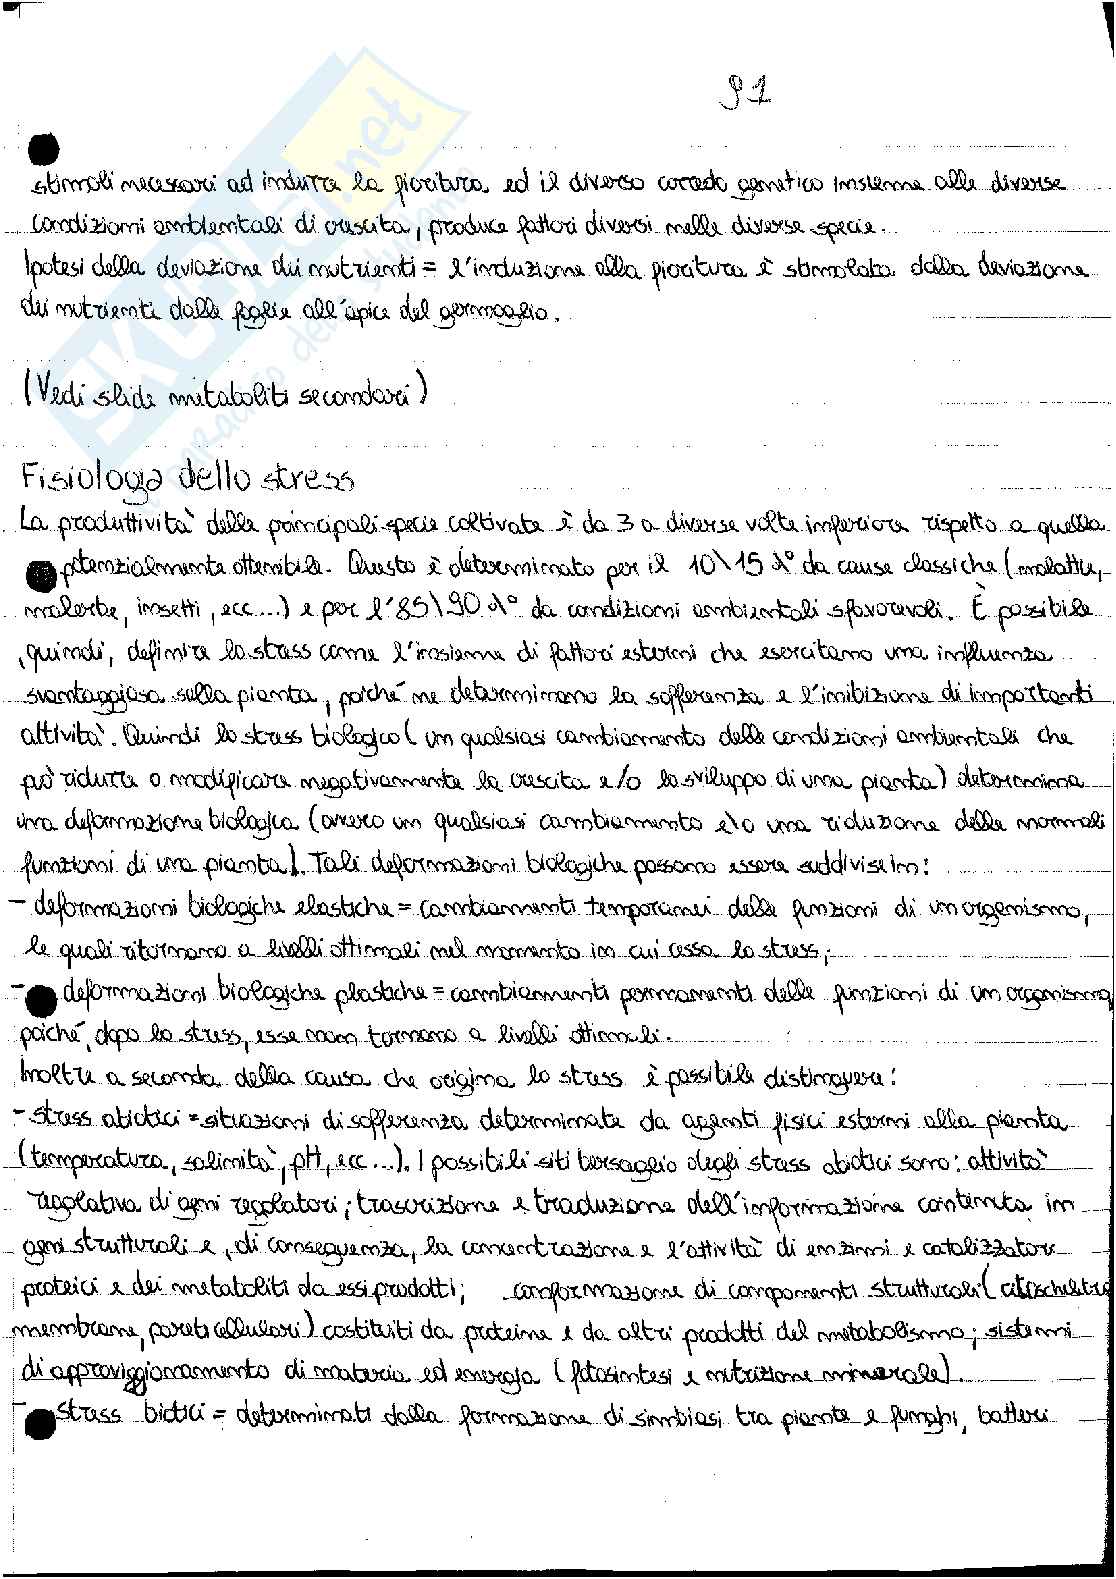 91
stimoli necessari ad indurre la fioritura ed il diverso corredo genetico insieme alle diverse
condizioni ambientali di crescita, produce fattori diversi nelle diverse specie.
Ipotesi della deviazione dei nutrienti = l'induzione alla fioritura è stimolata dalla deviazione
dei nutrienti dalle foglie all'apice del germoglio.
(Vedi slide metaboliti secondari)
Fisiologa dello stress
La produttività delle principali specie coltivate è da 3 a diverse volte inferiore rispetto a quella
potenzialmente ottenibile. Questo è determinato per il 10\15 % da cause classiche (malattie,
malerbe, insetti, ecc...) e per l'85\90 % da condizioni ambientali sfavorevoli. È possibile
, quindi, definire lo stress come l'insieme di fattori esterni che esercitano una influenza
svantaggiosa sulla pianta, poiché ne determinano la sofferenza e l'inibizione di importanti
attività. Quindi lo stress biologico (un qualsiasi cambiamento delle condizioni ambientali che
può ridurre o modificare negativamente la crescita e/o lo sviluppo di una pianta) determina
una deformazione biologica (ovvero un qualsiasi cambiamento e\o una riduzione delle normali
funzioni di una pianta). Tali deformazioni biologiche possono essere suddivise in:
- deformazioni biologiche elastiche = cambiamenti temporanei delle funzioni di un organismo,
le quali ritornano a livelli ottimali nel momento in cui cessa lo stress;
- deformazioni biologiche plastiche = cambiamenti permanenti delle funzioni di un organismo,
poiché, dopo lo stress, esse non tornano a livelli ottimali.
Inoltre a seconda della causa che origina lo stress è possibile distinguere:
- stress abiotici = situazioni di sofferenza determinate da agenti fisici esterni alla pianta
(temperatura, salinità, pH, ecc...). I possibili siti bersaglio degli stress abiotici sono: attività
regolativa di geni regolatori; trascrizione e traduzione dell'informazione contenuta in
geni strutturali e, di conseguenza, la concentrazione e l'attività di enzimi e catalizzatori
proteici e dei metaboliti da essi prodotti; conformazione di componenti strutturali (citoscheletro,
membrane, pareti cellulari) costituiti da proteine e da altri prodotti del metabolismo; sistemi
di approvvigionamento di materia ed energia (fotosintesi e nutrizione minerale).
- stress biotici = determinati dalla formazione di simbiosi tra piante e funghi, batteri
SKUOLA.net
il paradiso dello studente